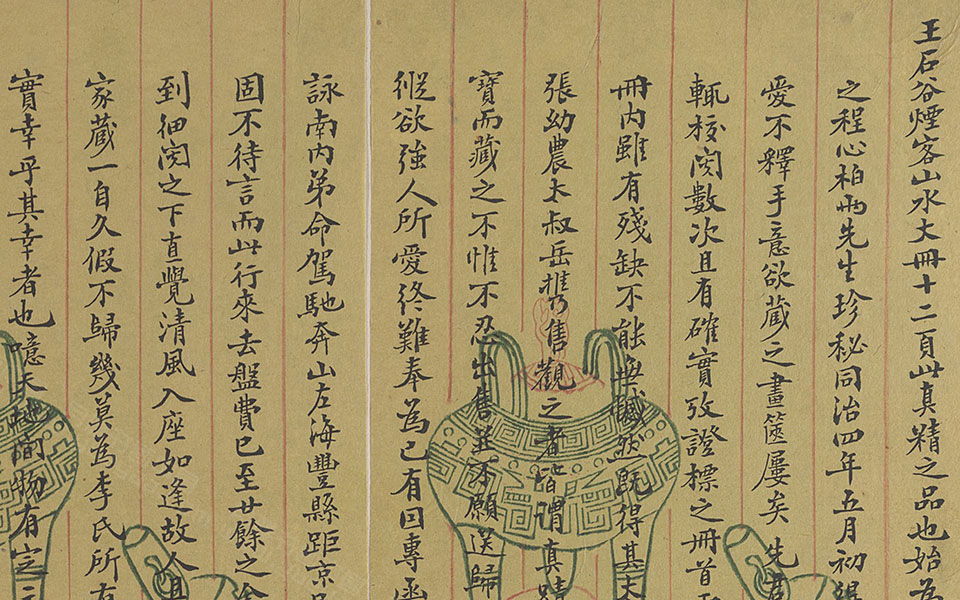 王石谷煙客山水大冊十二頁此真精之品也始為
之程心柏兩先生珍秘同治四年五月初
愛不釋手意欲蔵之畫篋屢矣 先君
輒校閱數次且有確實攷證標之冊首
冊内雖有殘缺不能無憾然既得其大
張幼農太叔岳攜乃售觀之者皆謂真蹟
寶而藏之不惟不忍出售並不願送歸
縱欲強人所愛終難奉為已有因專函
詠南内弟命駕馳奔山左海豐縣距京
固不待言而此行來去盤費已至廿餘之
到細閱之下直覺清風入座如逢故人
家蔵一自久假不歸幾莫為李氏所有
實幸乎其幸者也噫天地間物有定